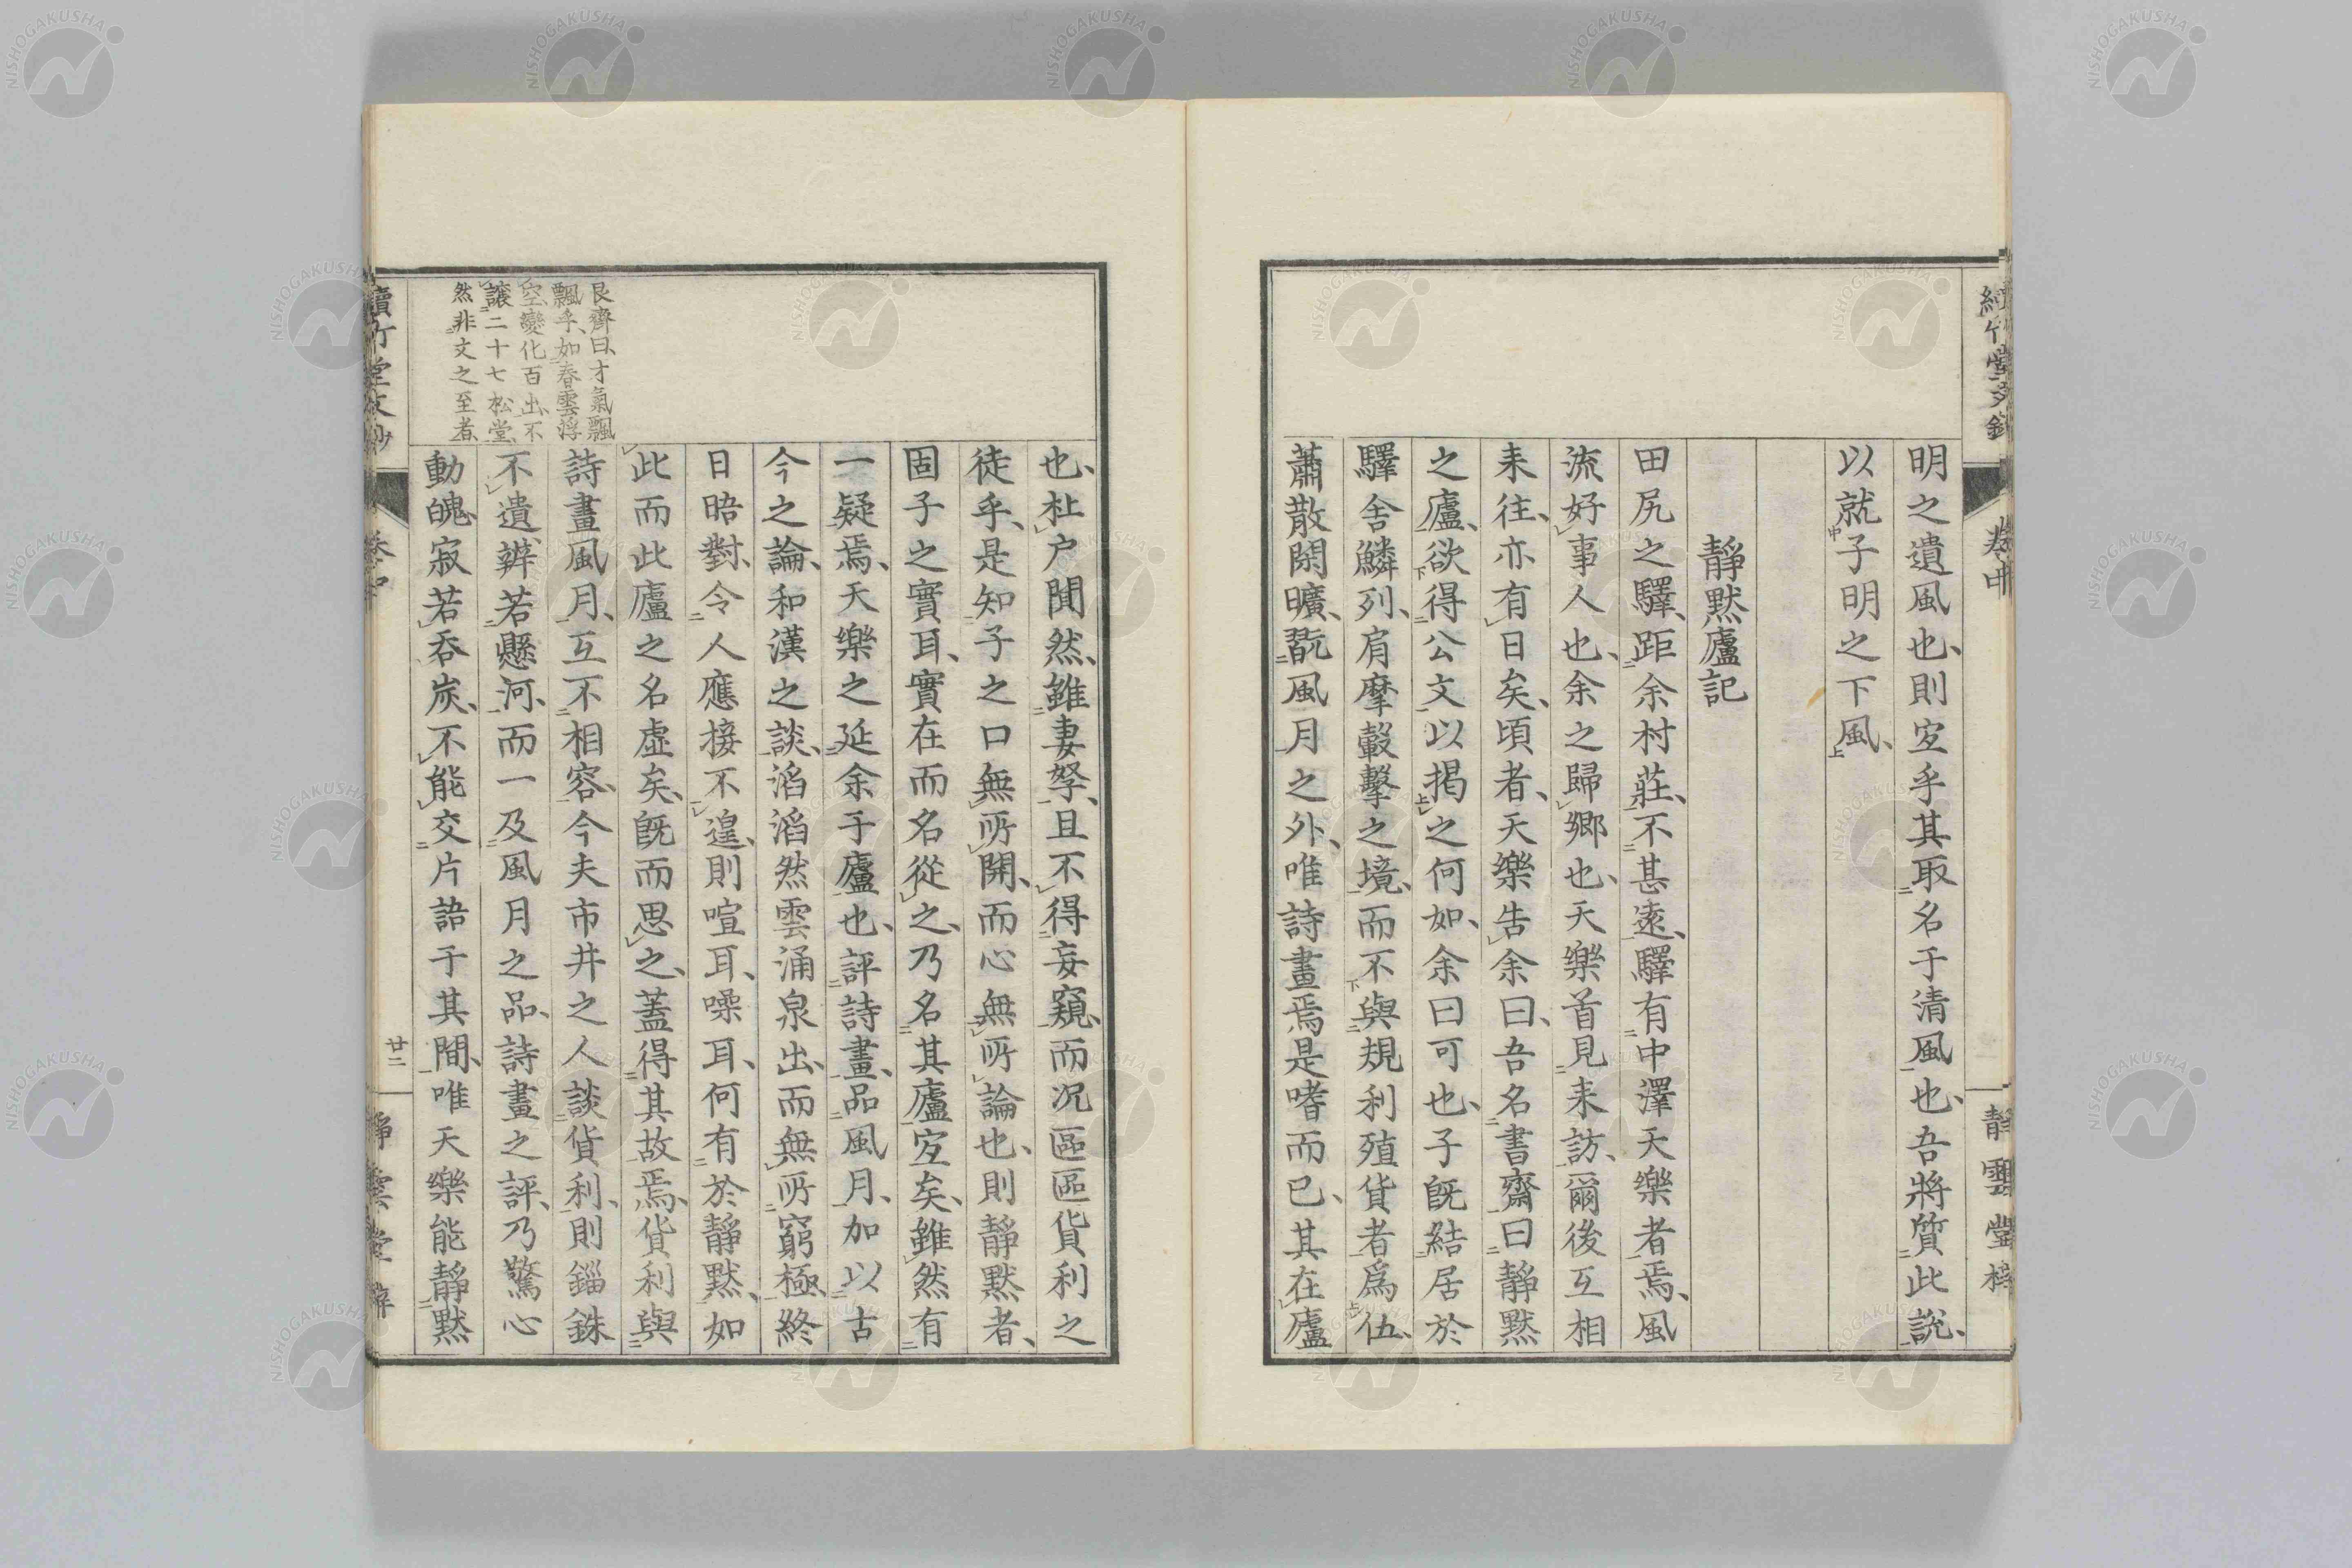 明之遺風也、則宐乎其取名于清風也、吾將質此說、
以就子明之下風、
靜默廬記
田尻之驛、距余村莊、不甚遠、驛有中澤天樂者焉、風
流好事人也、余之歸鄉也、天樂首見来訪、爾後互相
来往、亦有日矣、頃者、天樂告余曰、吾名書齋曰靜默
之廬、欲得公文以揭之何如、余曰可也、子旣結居於
驛舍鱗列、肩摩轂擊之境、而不與規利殖貨者爲伍、
蕭散閑曠、翫風月之外、唯詩畫焉是嗜而已、其在廬
也、杜户闃然、雖妻孥、且不得妄窺、而况區區貨利之
徒乎、是知子之口無所開、而心無所論也、則靜默者、
固子之實耳、實在而名從之、乃名其廬宐矣、雖然有
一疑焉、天樂之延余于廬也、評詩畫、品風月、加以古
今之論、和漢之談、滔滔然雲涌泉出、而無所窮極、終
日晤對、令人應接不遑、則喧耳、噪耳、何有於靜默、如
此而此廬之名虛矣、旣而思之、蓋得其故焉、貨利與
詩畫風月、互不相容、今夫市井之人談貨利、則錙銖
不遺、辨若懸河、而一及風月之品、詩畫之評、乃驚心
動魄、寂若吞炭、不能交片語于其間、唯天樂能靜默
艮齊曰、才氣飄
飄乎、如春雲浮
空、變化百出、不
讓二十七松堂、
然非文之至者、
卷中
廿二